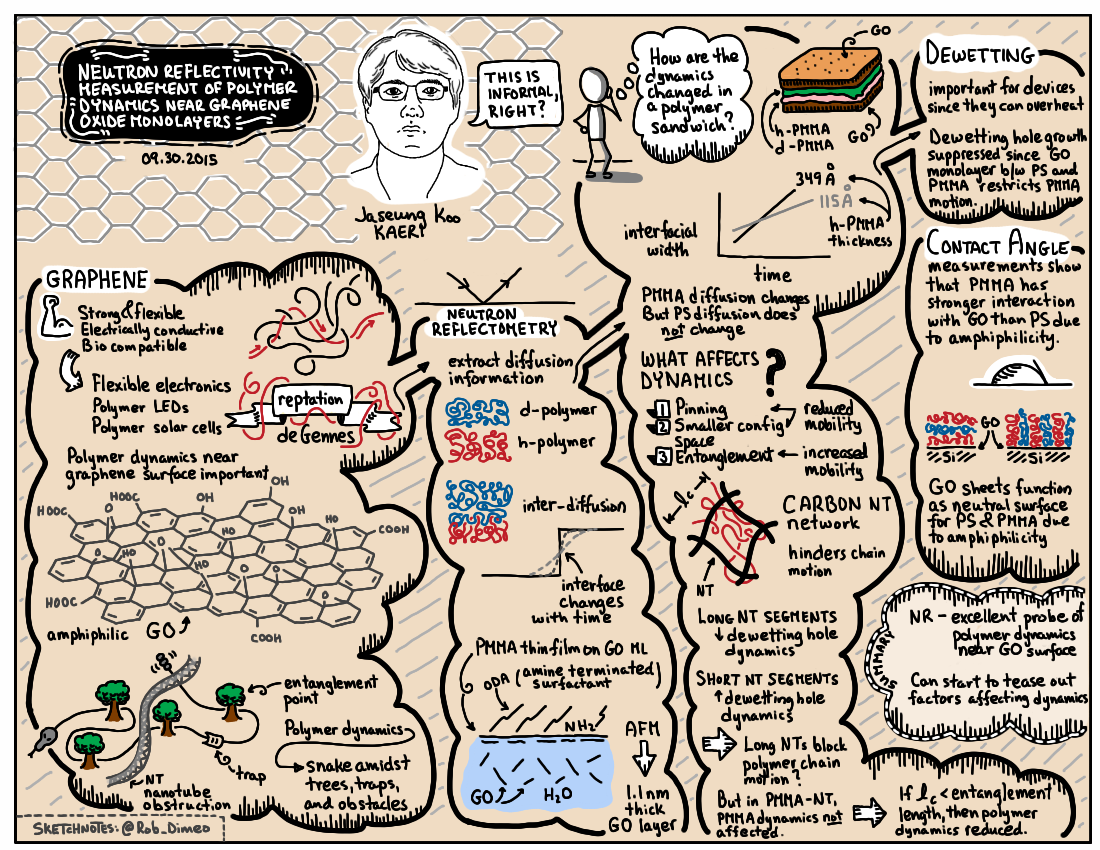 NEUTRON REFLECTIVITY
MEASUREMENT OF POLYMER
DYNAMICS NEAR GRAPHENE
OXIDE MONOLAYERS
09.30.2015
THIS IS
INFORMAL,
RIGHT?
Jaseung Koo
KAERI
GRAPHENE
Strong & flexible
Electrically conductive
Bio compatible
Flexible electronics
Polymer LEDs
Polymer solar cells
reptation
de Gennes
Polymer dynamics near
graphene surface important
HOOC
OH
OH
HOOC
O
OH
HO
HO
COOH
O
HO
O
HO
O
O
O
O
HOOC
COOH
amphiphilic GO
entanglement
point
Polymer dynamics
trap
snake amidst
trees, traps,
and obstacles
NT
nanotube
obstruction
SKETCHNOTES: @Rob_Dimeo
NEUTRON
REFLECTOMETRY
extract diffusion
information
d-polymer
h-polymer
inter-diffusion
interface
changes
with time
PMMA thin film on GO ML
ODA (amine terminated)
surfactant
NH2
GO
H2O
AFM
1.1nm
thick
GO layer
How are the
dynamics
changed in
a polymer
sandwich?
GO
h-PMMA
d-PMMA
GO
349 Å
115 Å
h-PMMA
thickness
interfacial
width
time
PMMA diffusion changes
But PS diffusion does
not change
WHAT AFFECTS
DYNAMICS ?
1 Pinning
2 Smaller config
space
reduced
mobility
3 Entanglement
increased
mobility
lc
NT
CARBON NT
network
hinders chain
motion
LONG NT SEGMENTS
↓ dewetting hole
dynamics
SHORT NT SEGMENTS
↑ dewetting hole
dynamics
Long NTs block
polymer chain
motion?
But in PMMA-NT,
PMMA dynamics not
affected.
If lc < entanglement
length, then polymer
dynamics reduced.
DEWETTING
important for devices
since they can overheat
Dewetting hole growth
suppressed since GO
monolayer b/w PS and
PMMA restricts PMMA
motion.
CONTACT ANGLE
measurements show
that PMMA has
stronger interaction
with GO than PS due
to amphiphilicity.
GO
Si
Si
GO sheets function
as neutral surface
for PS & PMMA due
to amphiphilicity
SUMMARY
NR - excellent probe of
polymer dynamics
near GO surface
Can start to tease out
factors affecting dynamics